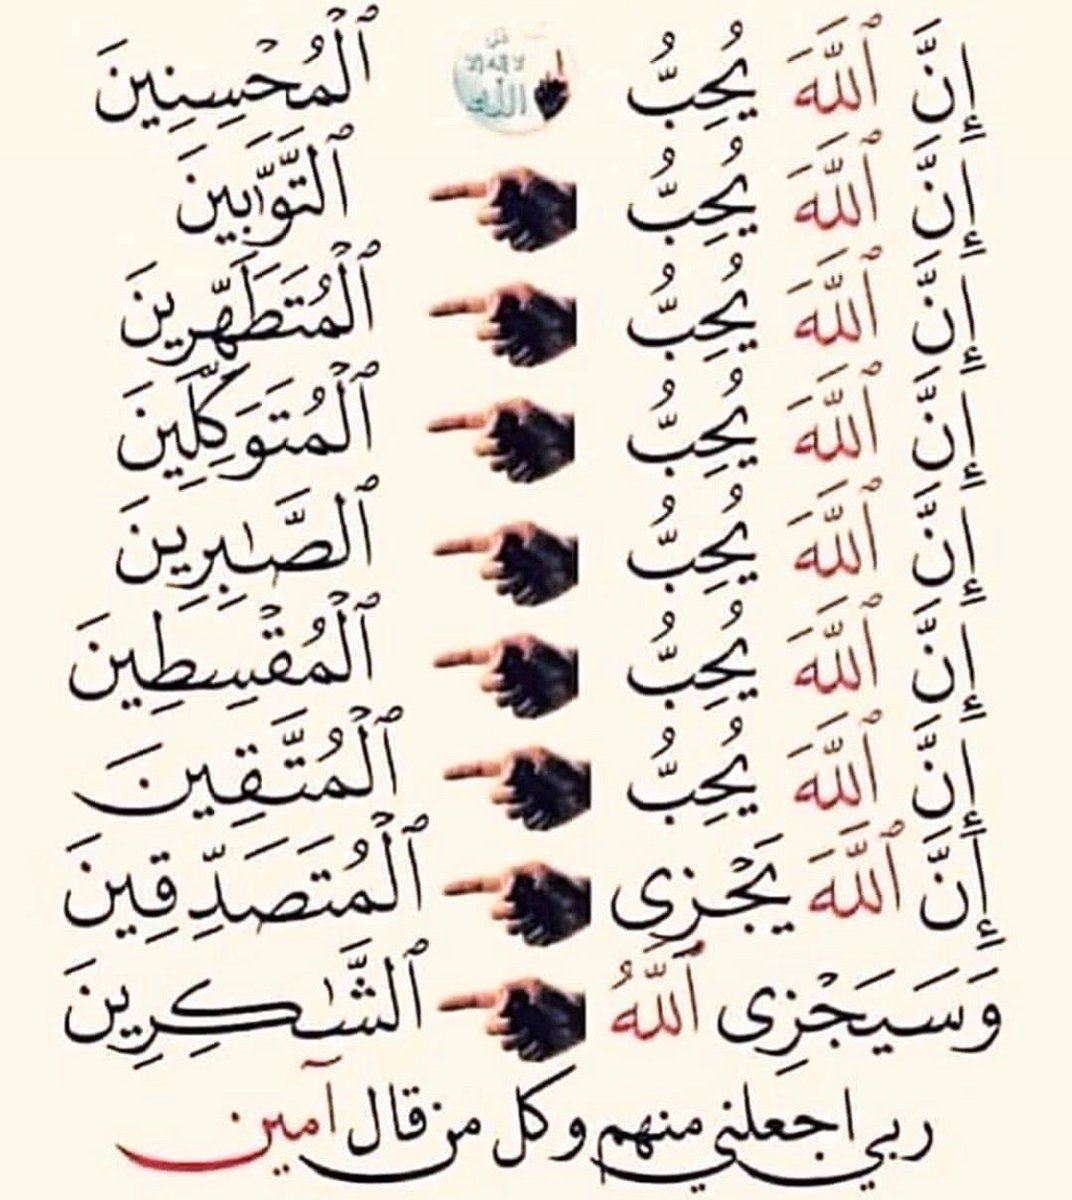 إِنَّ ٱللَّهَ يُحِبُّ ٱلْمُحْسِنِينَ
إِنَّ ٱللَّهَ يُحِبُّ ٱلتَّوَّٰبِينَ
إِنَّ ٱللَّهَ يُحِبُّ ٱلْمُتَطَهِّرِينَ
إِنَّ ٱللَّهَ يُحِبُّ ٱلْمُتَوَكِّلِينَ
إِنَّ ٱللَّهَ يُحِبُّ ٱلصَّٰبِرِينَ
إِنَّ ٱللَّهَ يُحِبُّ ٱلْمُقْسِطِينَ
إِنَّ ٱللَّهَ يُحِبُّ ٱلْمُتَّقِينَ
إِنَّ ٱللَّهَ يَجْزِى ٱلْمُتَصَدِّقِينَ
وَسَيَجْزِى ٱللَّهُ ٱلشَّٰكِرِينَ
ربي اجعلني منهم وكل من قال آمين